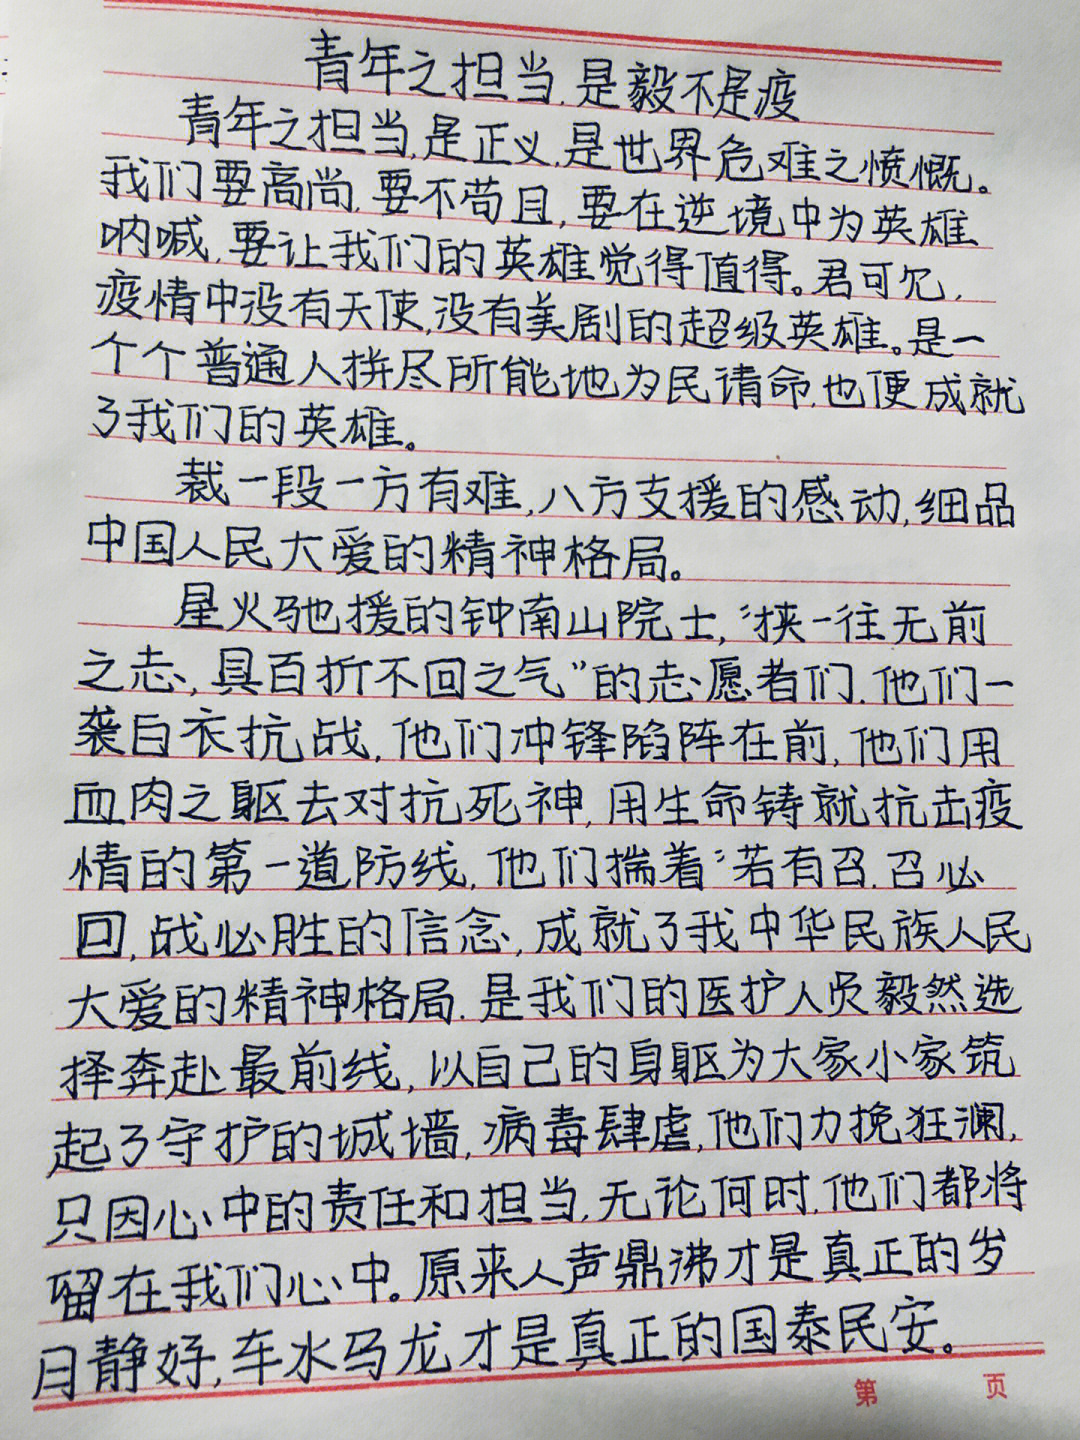 青年之担当,是毅不是疫
青年之担当,是正义,是世界危难之愤慨。
我们要高尚,要不苟且,要在逆境中为英雄
呐喊,要让我们的英雄觉得值得。君可欠,
疫情中没有天使,没有美剧的超级英雄。是一
个个普通人拼尽所能地为民请命,也便成就
了我们的英雄。
裁一段一方有难,八方支援的感动,细品
中国人民大爱的精神格局。
星火驰援的钟南山院士,“挟一往无前
之志,具百折不回之气”的志愿者们,他们一
袭白衣抗战,他们冲锋陷阵在前,他们用
血肉之躯去对抗死神,用生命铸就抗击疫
情的第一道防线,他们揣着“若有召,召必
回,战必胜的信念,成就了我中华民族人民
大爱的精神格局.是我们的医护人员毅然选
择奔赴最前线,以自己的身躯为大家小家筑
起了守护的城墙,病毒肆虐,他们力挽狂澜,
只因心中的责任和担当,无论何时,他们都将
留在我们心中。原来人声鼎沸才是真正的岁
月静好,车水马龙才是真正的国泰民安。
第 页